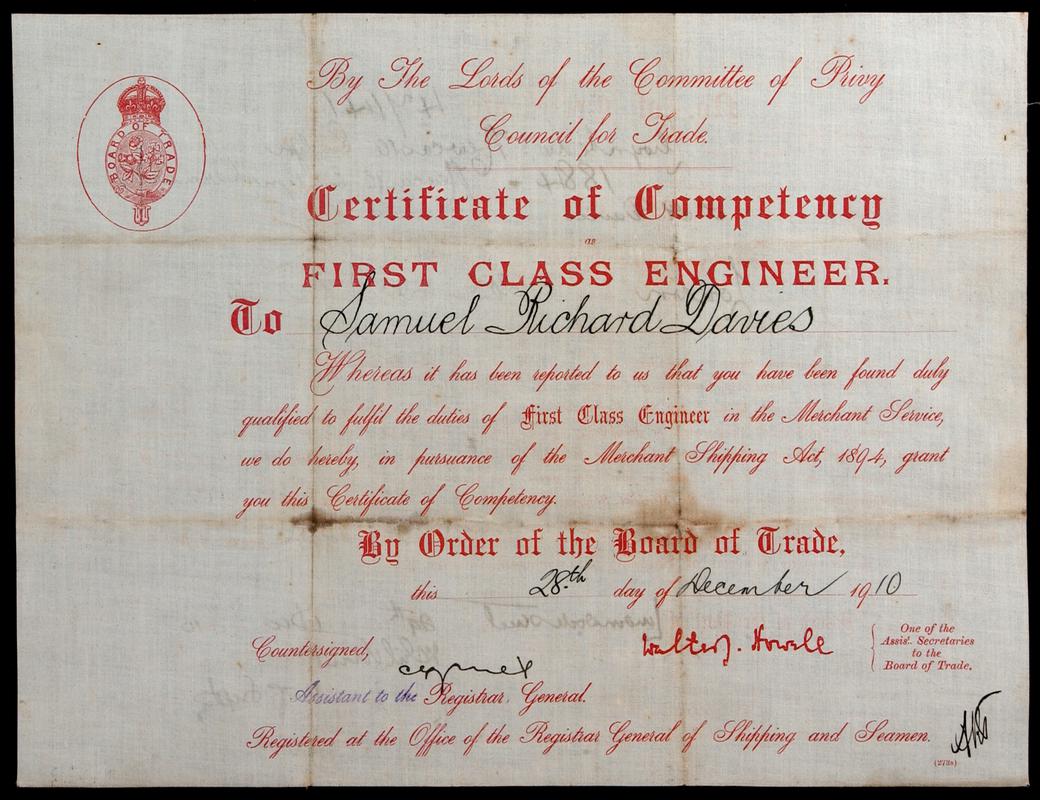 BOARD OF TRADE
By The Lords of the Committee of Privy
Council for Trade.
Certificate of Competency
as
FIRST CLASS ENGINEER.
To Samuel Richard Davies
Whereas it has been reported to us that you have been found duly
qualified to fulfil the duties of First Class Engineer in the Merchant Service,
we do hereby, in pursuance of the Merchant Shipping Act, 1894, grant
you this Certificate of Competency.
By Order of the Board of Trade,
this 28th day of December 1910
Walter J. Howell
One of the
Assist. Secretaries
to the
Board of Trade.
Countersigned,
Assistant to the Registrar General.
Registered at the Office of the Registrar General of Shipping and Seamen.